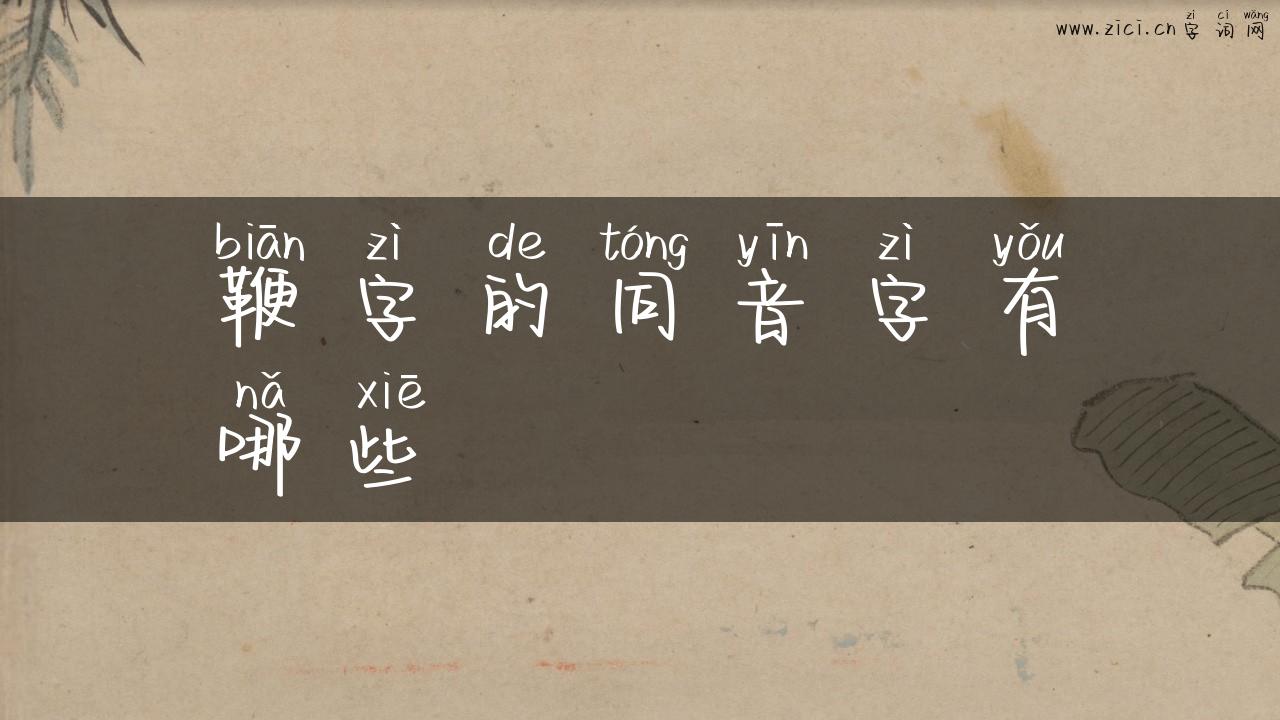 zì cí wǎng
www.zici.cn 字 词 网
biān zì de tóng yīn zì yǒu
鞭 字 的 同 音 字 有
nǎ xiē
哪 些